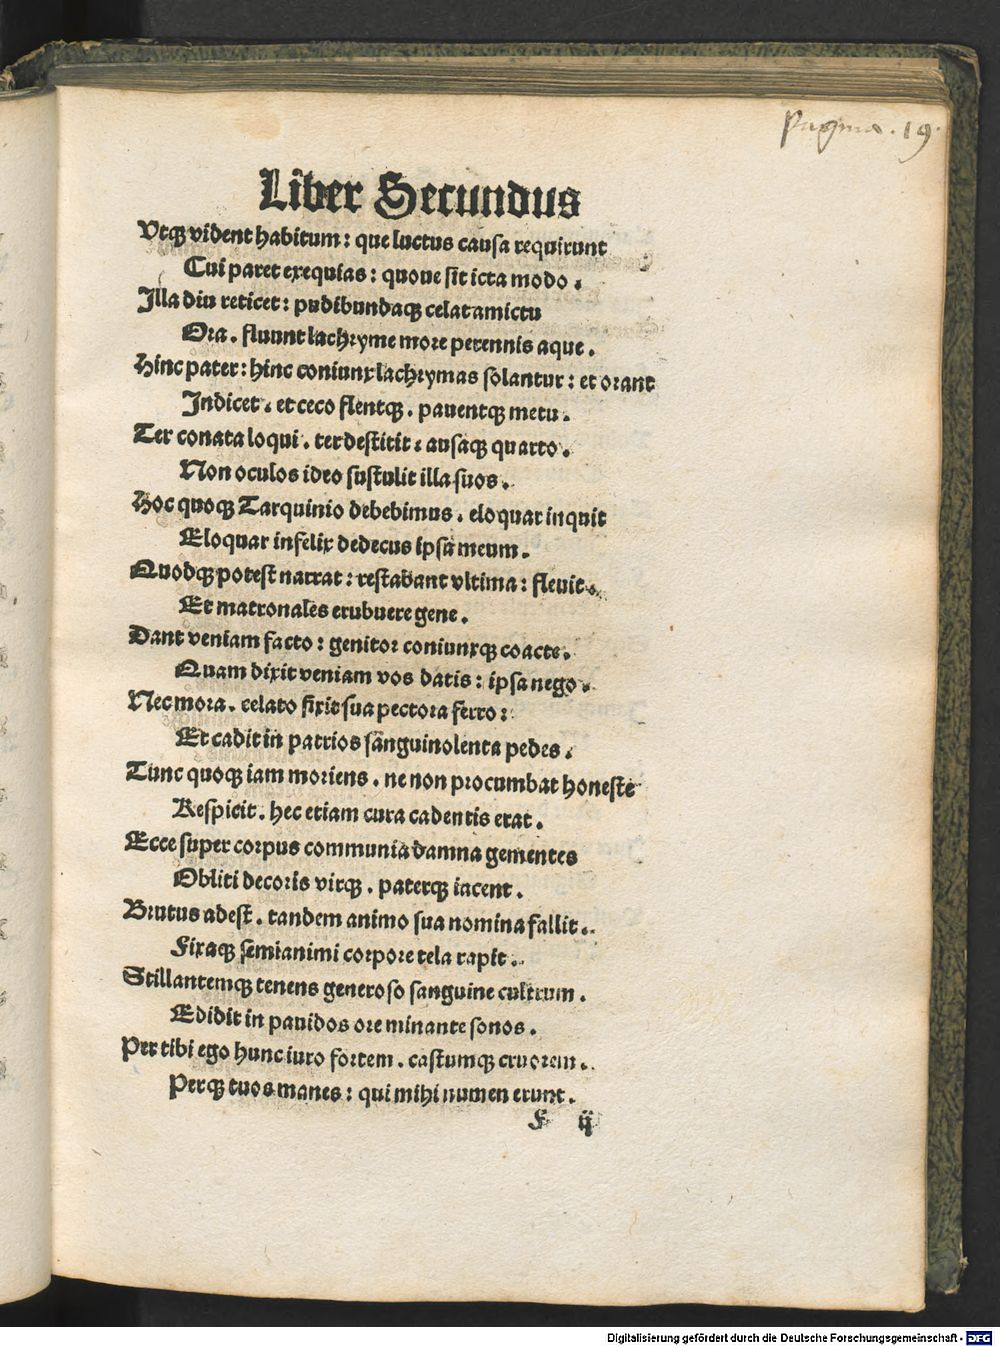 Pagina . 19.
Liber Secundus
Vtqꝫ vident habitum : que luctus causa requirunt
Cui paret exequias : quoue sit icta modo .
Illa diu reticet : pudibundaqꝫ celat amictu
Ora . fluunt lachryme more perennis aque .
Hinc pater : hinc coniunx lachrymas solantur : et orant
Indicet . et ceco flentqꝫ . pauentqꝫ metu .
Ter conata loqui . ter destitit : ausaqꝫ quarto .
Non oculos ideo sustulit illa suos .
Hoc quoqꝫ Tarquinio debebimus . eloquar inquit
Eloquar infelix dedecus ipsa meum .
Quodqꝫ potest narrat : restabant vltima : fleuit .
Et matronales erubuere gene .
Dant veniam facto : genitor coniunxqꝫ coacte .
Quam dixit veniam vos datis : ipsa nego .
Nec mora . celato fixit sua pectora ferro :
Et cadit in patrios sanguinolenta pedes .
Tunc quoqꝫ iam moriens . ne non procumbat honeste
Respicit . hec etiam cura cadentis erat .
Ecce super corpus communia damna gementes
Obliti decoris virqꝫ . paterqꝫ iacent .
Brutus adest . tandem animo sua nomina fallit .
Fixaqꝫ semianimi corpore tela rapit .
Stillantemqꝫ tenens generoso sanguine cultrum .
Edidit in pauidos ore minante sonos .
Per tibi ego hunc iuro fortem . castumqꝫ cruorem .
Perqꝫ tuos manes : qui mihi numen erunt .
F ij
Digitalisierung gefördert durch die Deutsche Forschungsgemeinschaft - DFG